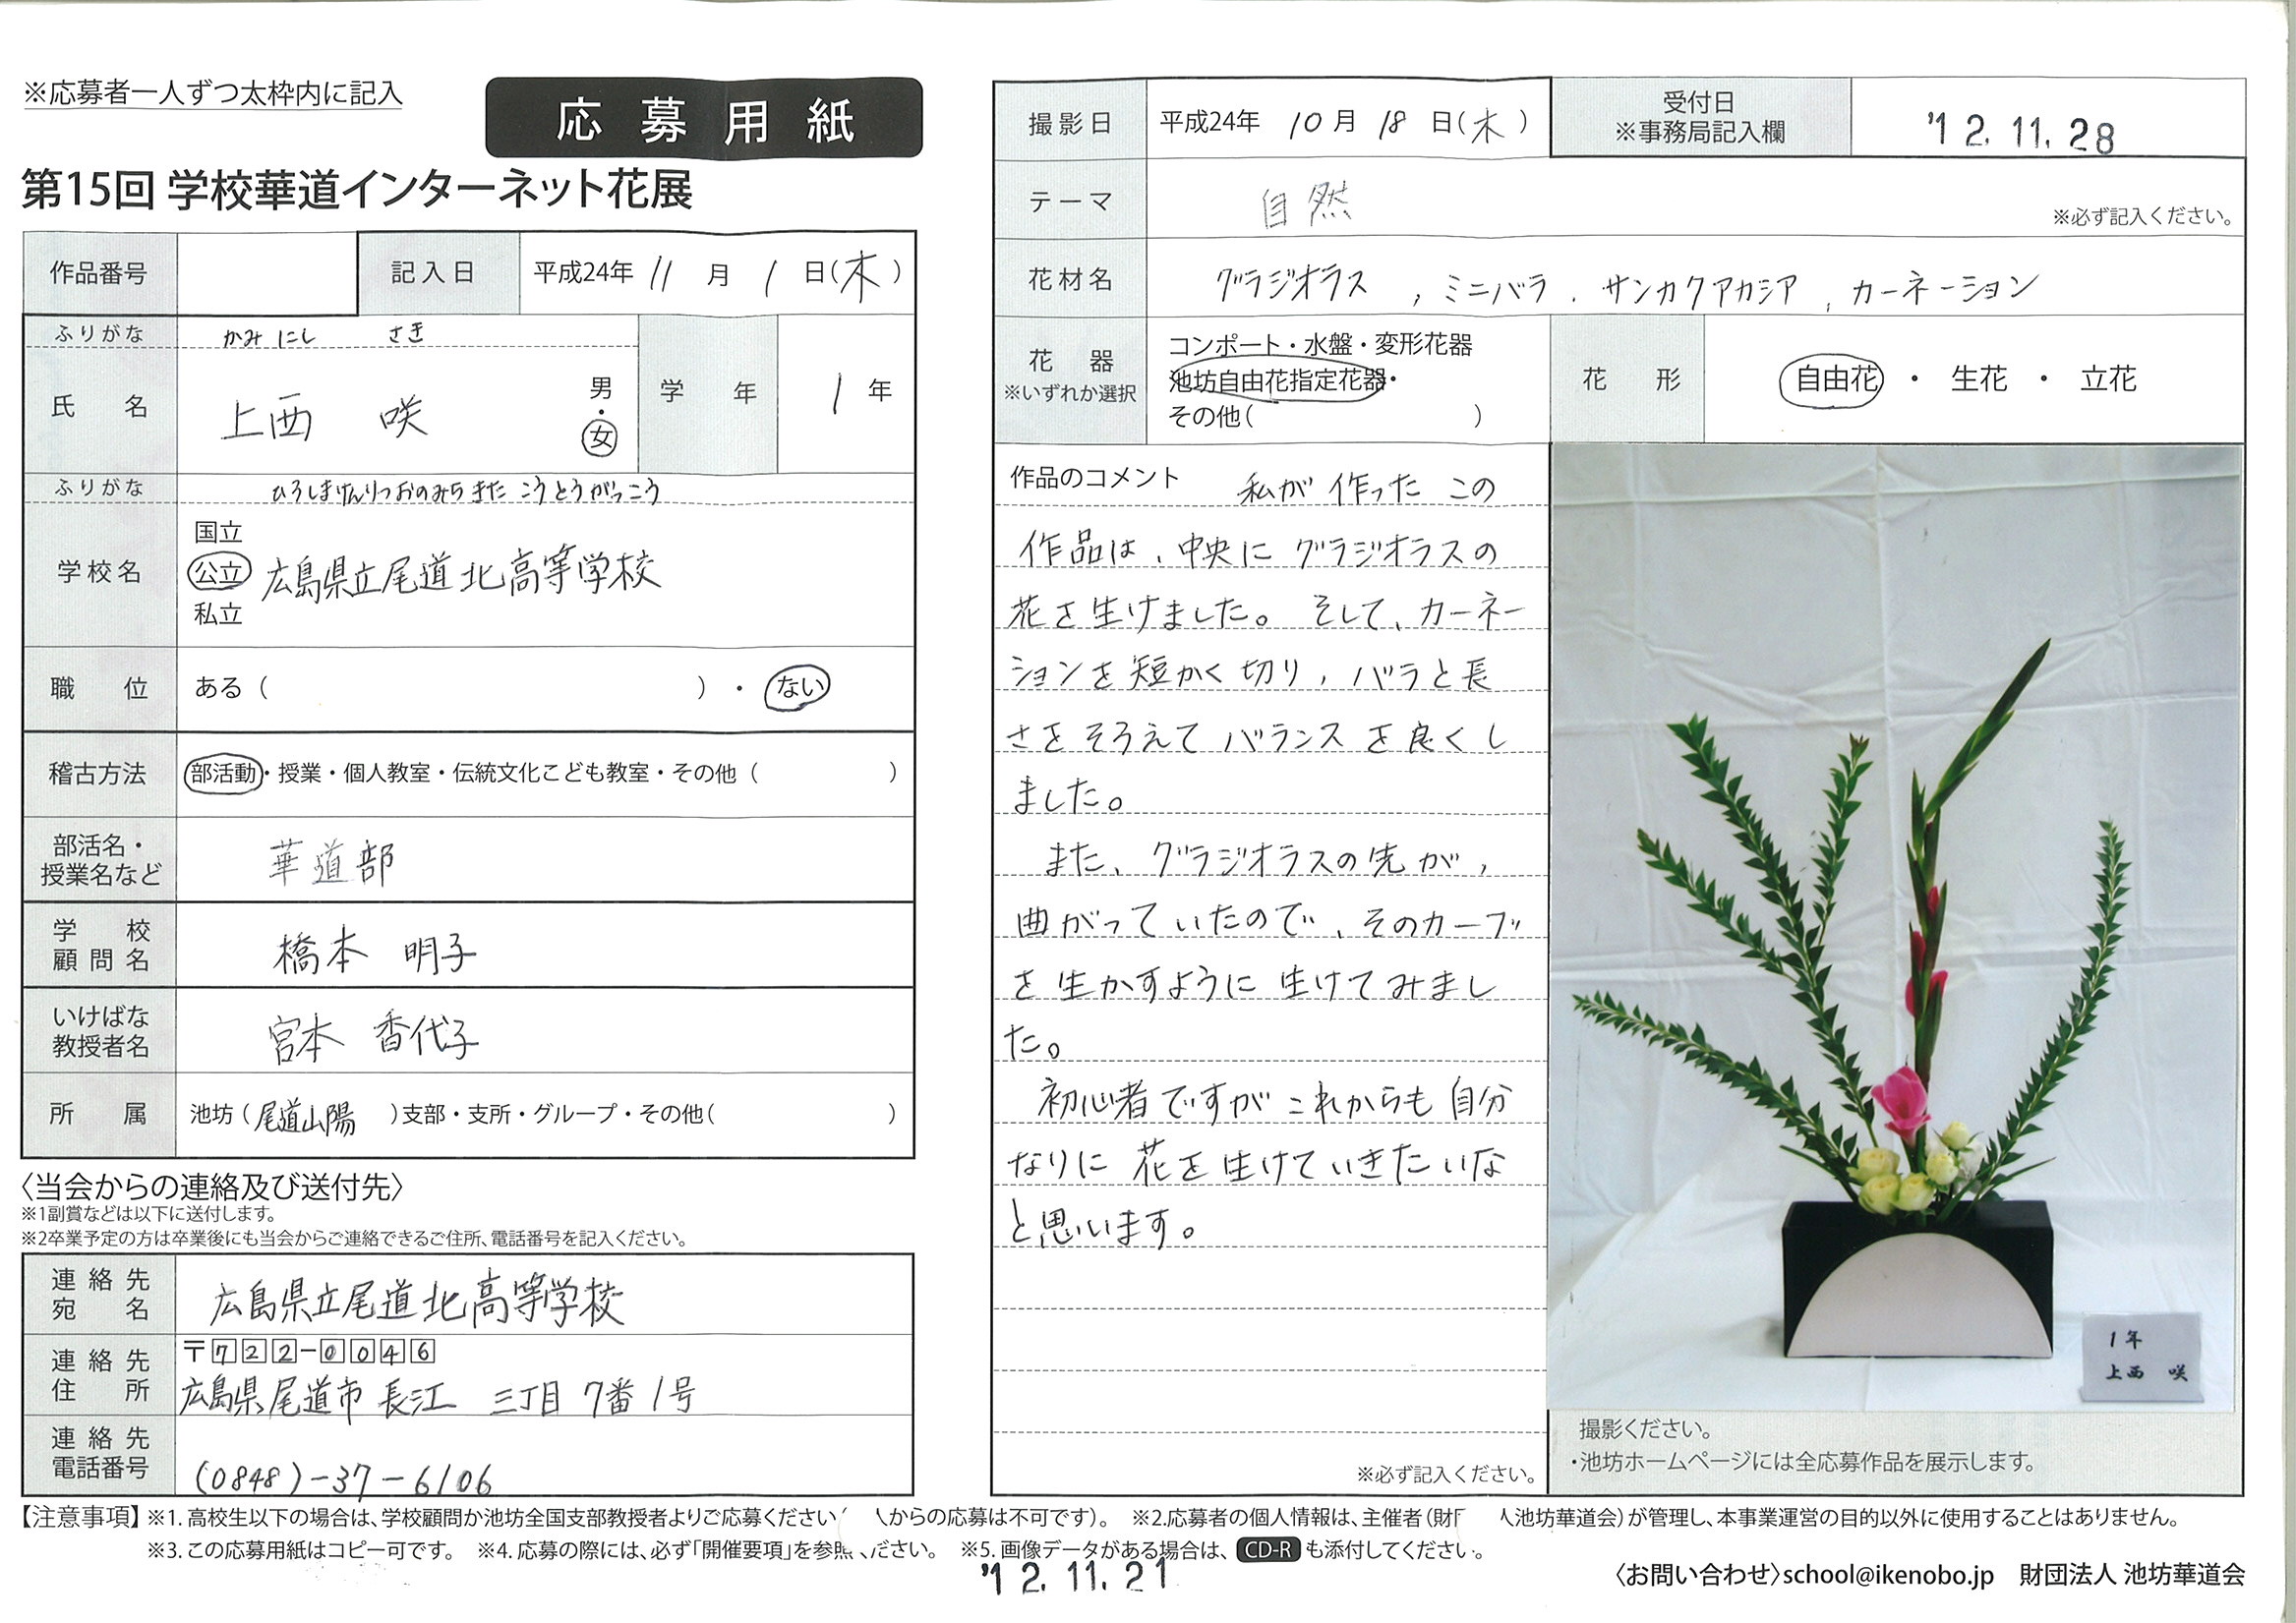 ※応募者一人ずつ太枠内に記入
応募用紙
第15回 学校華道インターネット花展
作品番号
記入日 平成24年 11月 1日(木)
ふりがな かみにし さき
氏名 上西 咲 男・女
学年 1年
ふりがな ひろしまけんりつおのみちきたこうとうがっこう
学校名 国立 公立 私立 広島県立尾道北高等学校
職位 ある( )・ない
稽古方法 部活動・授業・個人教室・伝統文化こども教室・その他( )
部活名・授業名など 華道部
学校顧問名 橋本 明子
いけばな教授者名 宮本 香代子
所属 池坊(尾道山陽)支部・支所・グループ・その他( )
〈当会からの連絡及び送付先〉
※1副賞などは以下に送付します。
※2卒業予定の方は卒業後にも当会からご連絡できるご住所、電話番号を記入ください。
連絡先宛名 広島県立尾道北高等学校
連絡先住所 〒722-0046
広島県尾道市長江 三丁目7番1号
連絡先電話番号 (0848)-37-6106
撮影日 平成24年 10月 18日(木)
受付日
※事務局記入欄
'12.11.28
テーマ 自然
※必ず記入ください。
花材名 グラジオラス , ミニバラ , サンカクアカシア , カーネーション
花器
※いずれか選択
コンポート・水盤・変形花器
池坊自由花指定花器・
その他( )
花形 自由花 ・ 生花 ・ 立花
作品のコメント 私が作ったこの
作品は、中央にグラジオラスの
花を生けました。そして、カーネー
ションを短かく切り,バラと長
さをそろえてバランスを良くし
ました。
また、グラジオラスの先が,
曲がっていたので、そのカーブ
を生かすように生けてみまし
た。
初心者ですがこれからも自分
なりに花を生けていきたいな
と思います。
※必ず記入ください。
1年
上西 咲
撮影ください。
・池坊ホームページには全応募作品を展示します。
【注意事項】※1.高校生以下の場合は、学校顧問か池坊全国支部教授者よりご応募ください( 人からの応募は不可です)。 ※2.応募者の個人情報は、主催者(財 人池坊華道会)が管理し、本事業運営の目的以外に使用することはありません。
※3.この応募用紙はコピー可です。 ※4.応募の際には、必ず「開催要項」を参照ください。 ※5.画像データがある場合は、CD-Rも添付してください。
'12.11.21
〈お問い合わせ〉school@ikenobo.jp 財団法人 池坊華道会